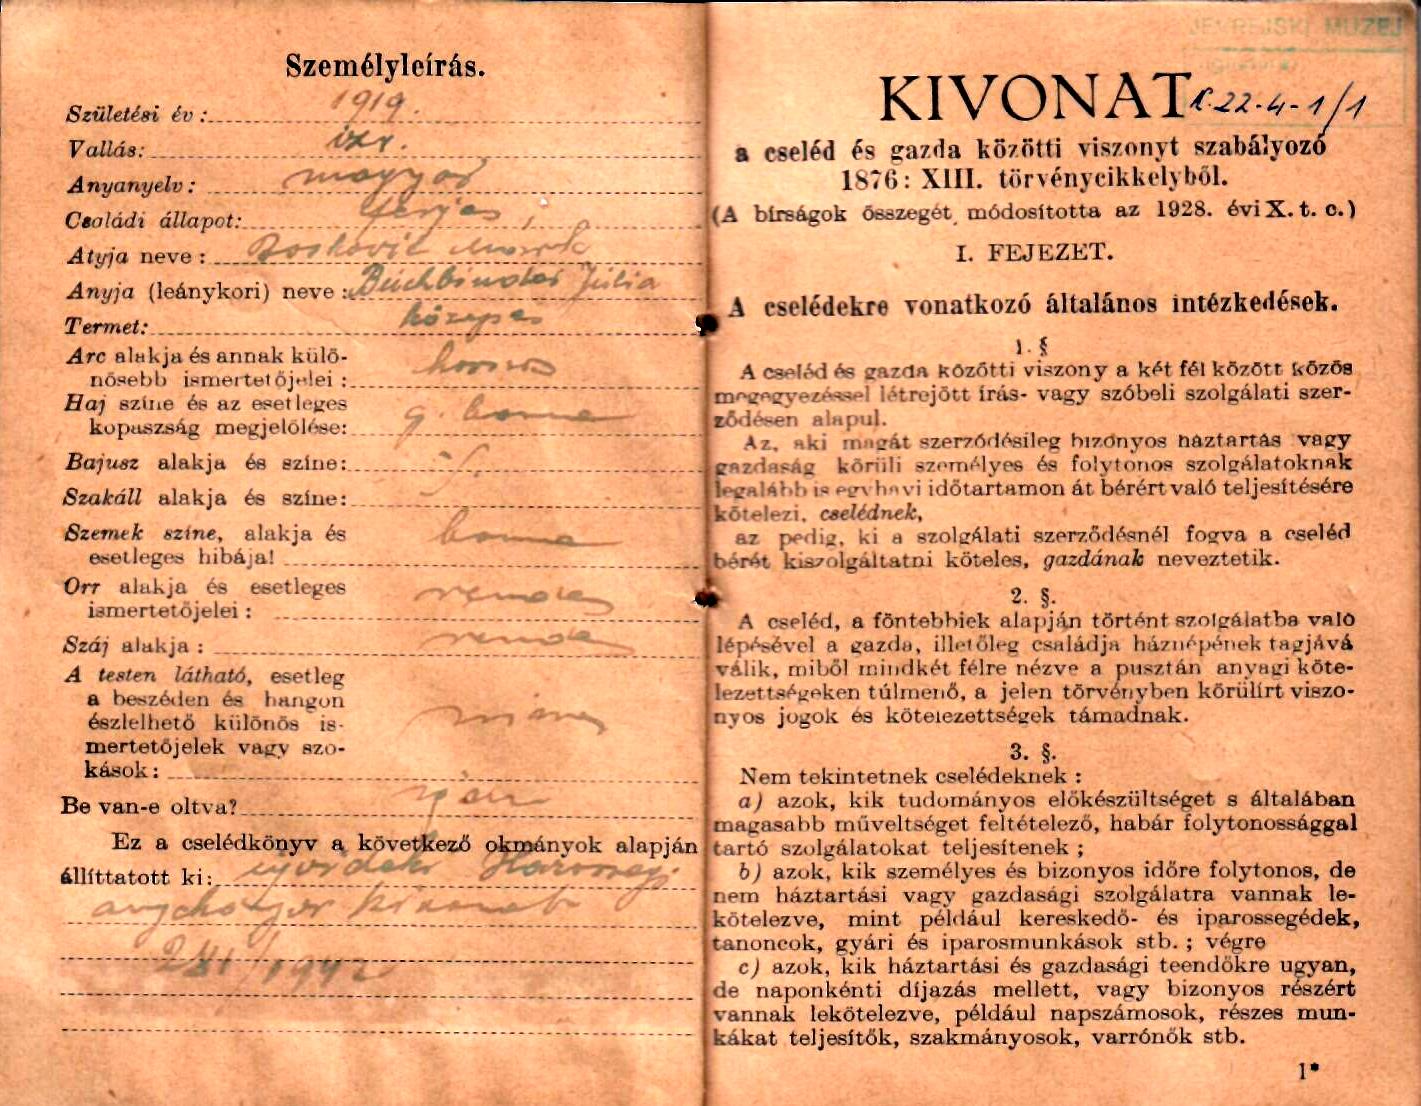 Személyleírás.
Születési év: 1919.
Vallás: izr.
Anyanyelv: magyar
Családi állapot: férjes
Atyja neve:
Anyja (leánykori) neve: Buchbinder Júlia
Termet: közepes
Arc alakja és annak külö-
nösebb ismertetőjelei: hosszas
Haj színe és az esetleges
kopaszság megjelölése: g. barna
Bajusz alakja és színe:
Szakáll alakja és színe:
Szemek színe, alakja és
esetleges hibája! barna
Orr alakja és esetleges
ismertetőjelei: rendes
Száj alakja: rendes
A testen látható, esetleg
a beszéden és hangon
észlelhető különös is-
mertetőjelek vagy szo-
kások: nincs
Be van-e oltva? igen
Ez a cselédkönyv a következő okmányok alapján
állíttatott ki: ujvidéki
kivonat
1942
JEVREJSKI MUZEJ
KIVONAT
K.22-4-1/1
a cseléd és gazda közötti viszonyt szabályozó
1876: XIII. törvénycikkelyből.
(A bírságok összegét módosította az 1928. évi X. t. c.)
I. FEJEZET.
A cselédekre vonatkozó általános intézkedések.
1. §
A cseléd és gazda közötti viszony a két fél között közös
megegyezéssel létrejött írás- vagy szóbeli szolgálati szer-
ződésen alapul.
Az, aki magát szerződésileg bizonyos háztartás vagy
gazdaság körüli személyes és folytonos szolgálatoknak
legalább is egy havi időtartamon át bérért való teljesítésére
kötelezi, cselédnek,
az pedig, ki a szolgálati szerződésnél fogva a cseléd
bérét kiszolgáltatni köteles, gazdának neveztetik.
2. §.
A cseléd, a föntebbiek alapján történt szolgálatba való
lépésével a gazda, illetőleg családja háznépének tagjává
válik, miből mindkét félre nézve a pusztán anyagi köte-
lezettségeken túlmenő, a jelen törvényben körülírt viszo-
nyos jogok és kötelezettségek támadnak.
3. §.
Nem tekintetnek cselédeknek:
a) azok, kik tudományos előkészültséget s általában
magasabb műveltséget feltételező, habár folytonossággal
tartó szolgálatokat teljesítenek;
b) azok, kik személyes és bizonyos időre folytonos, de
nem háztartási vagy gazdasági szolgálatra vannak le-
kötelezve, mint például kereskedő- és iparossegédek,
tanoncok, gyári és iparosmunkások stb.; végre
c) azok, kik háztartási és gazdasági teendőkre ugyan,
de naponkénti díjazás mellett, vagy bizonyos részért
vannak lekötelezve, például napszámosok, részes mun-
kákat teljesítők, szakmányosok, varrónők stb.
1*